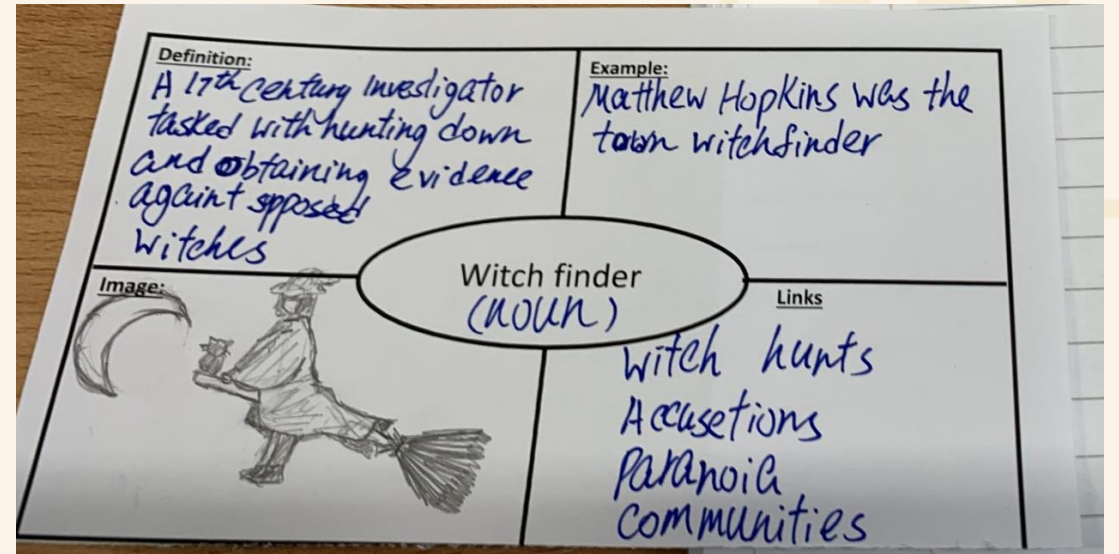 Definition:
A 17th century Investigator
tasked with hunting down
and obtaining evidence
againt spposed
witches
Example:
Matthew Hopkins was the
town witchfinder
Witch finder
(noun)
Image:
Links
Witch hunts
Accusetions
Paranoia
Communities